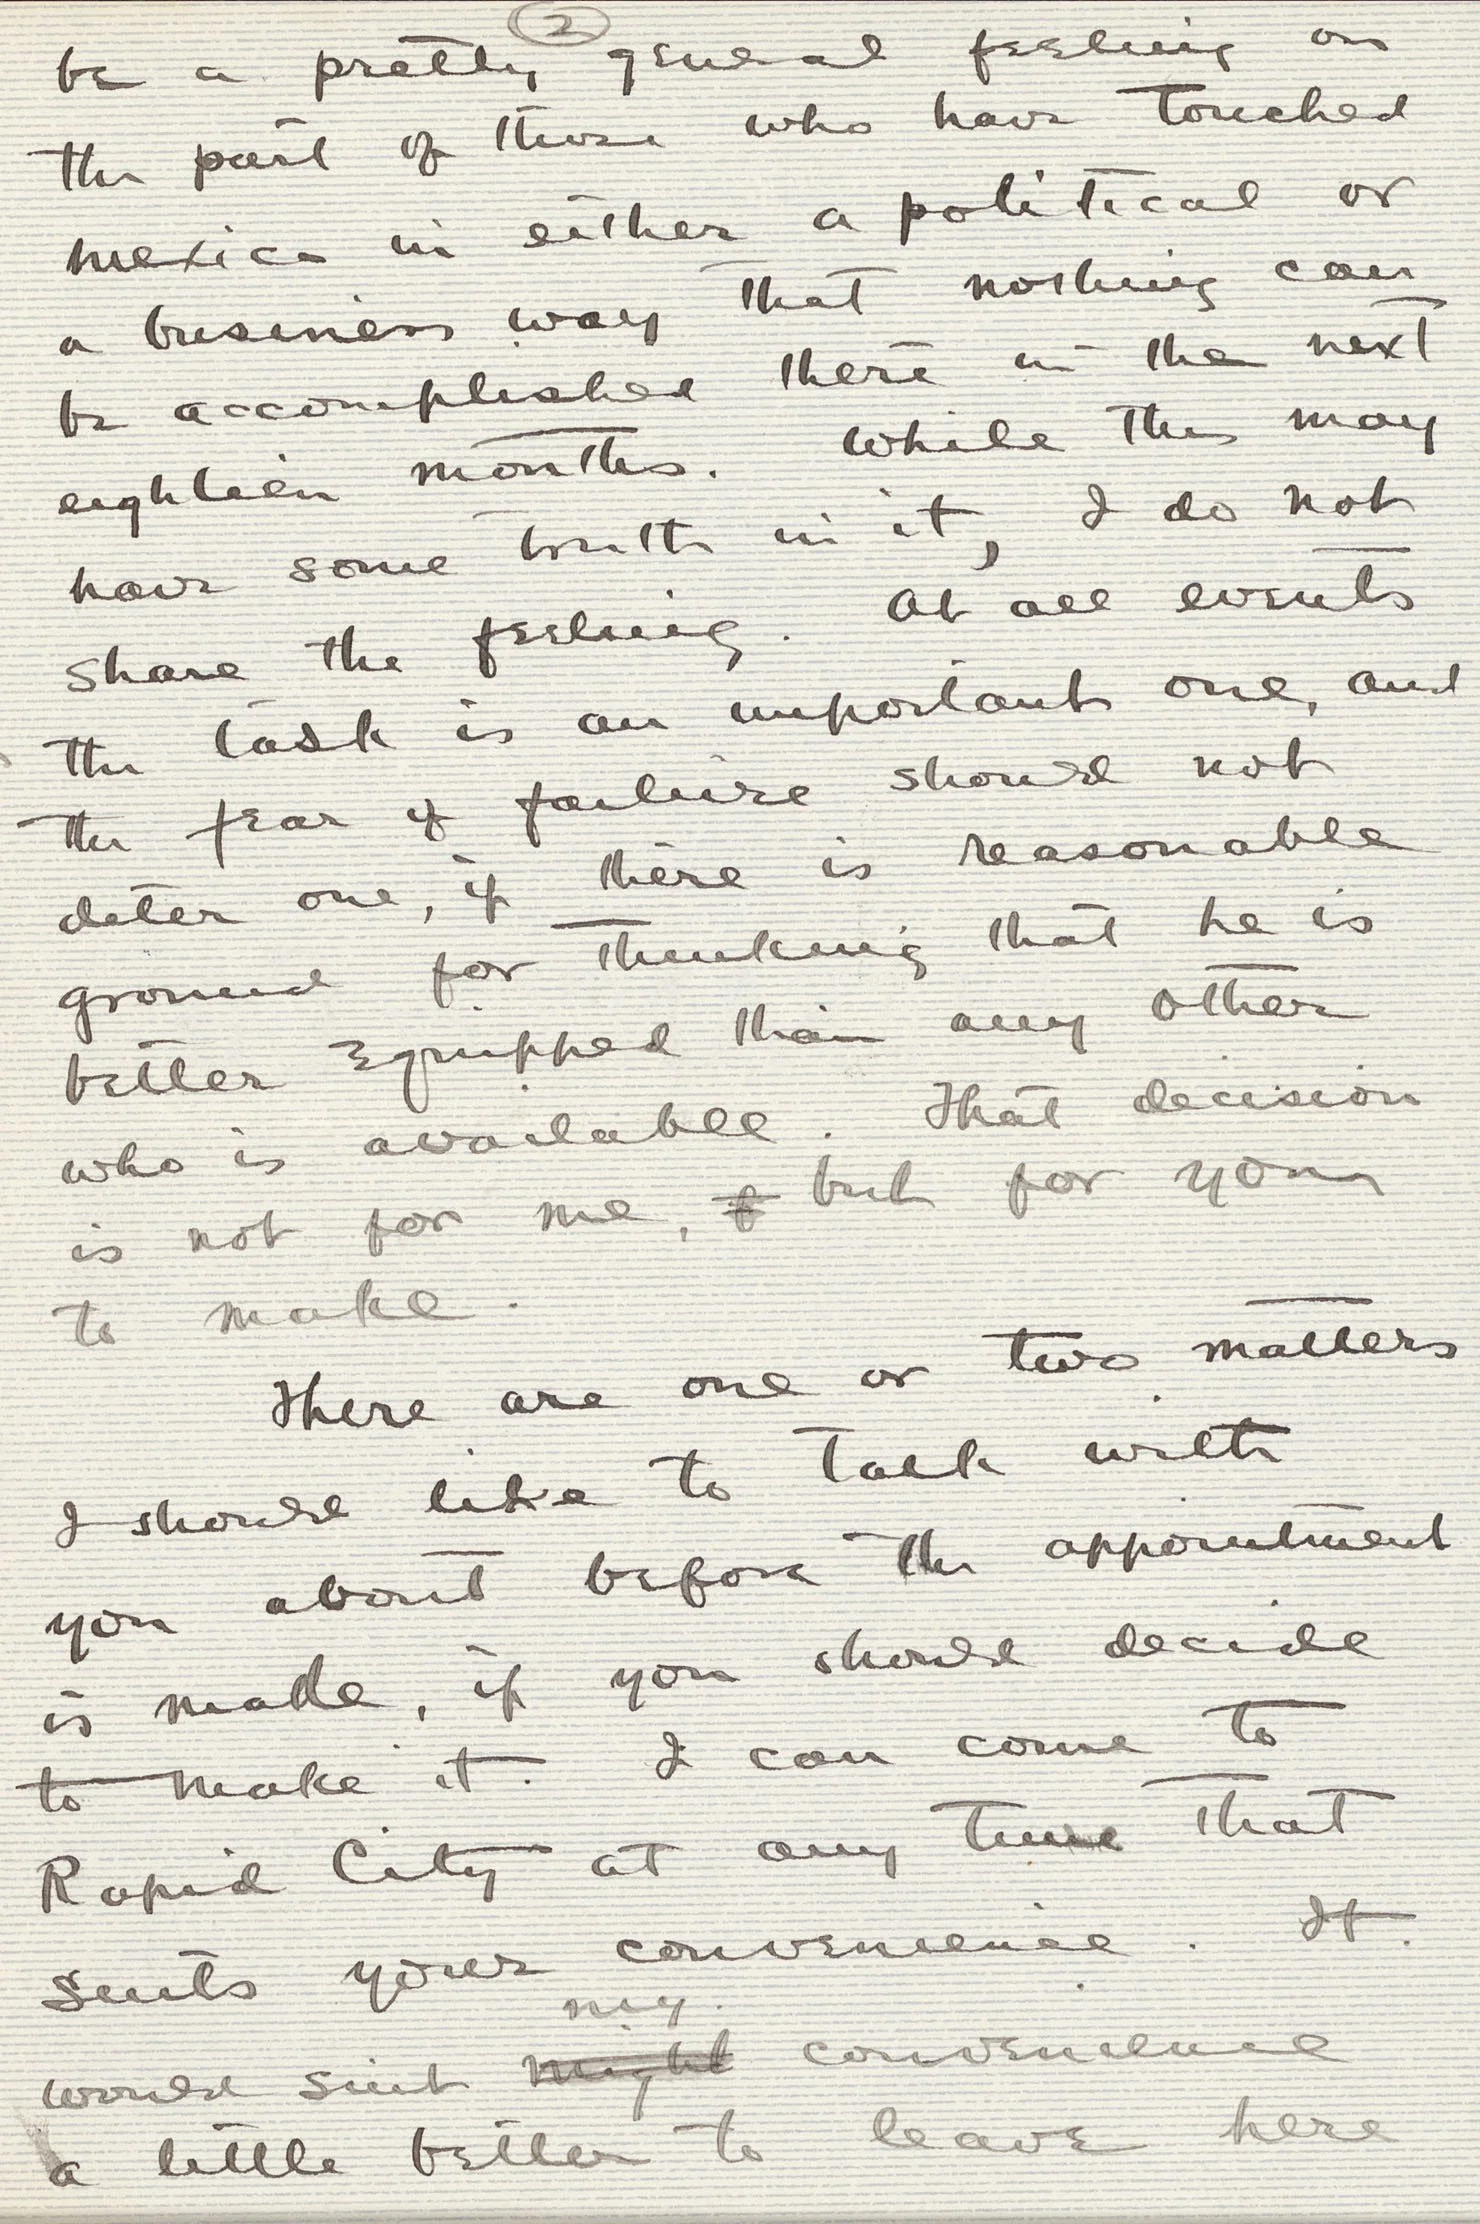 2
be a pretty general feeling on
the part of those who have touched
Mexico in either a political or
a business way that nothing can
be accomplished there in the next
eighteen months. While this may
have some truth in it, I do not
share the feeling. At all events
the task is an important one, and
the fear of failure should not
deter one, if there is reasonable
ground for thinking that he is
better equipped than any other
who is available. That decision
is not for me, but for you
to make.
There are one or two matters
I should like to talk with
you about before the appointment
is made, if you should decide
to make it. I can come to
Rapid City at any time that
suits your convenience. It
my
would suit might convenience
a little better to leave here